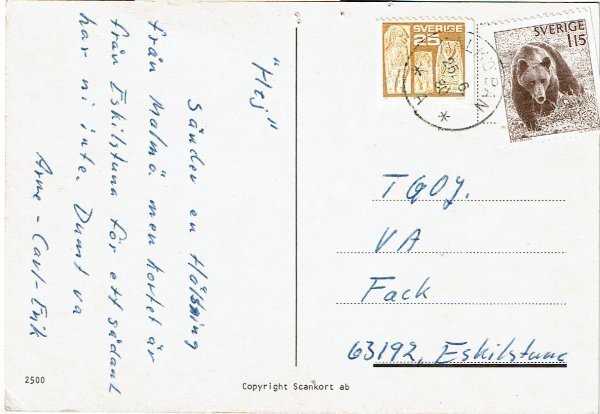 "Hej"
Sänder en Hälsning
från Malmö men kortet är
från Eskilstuna för ett sådant
har ni inte. Dumt va
Arne - Carl-Erik
SVERIGE
25
SVERIGE
115
TGOJ.
VA
Fack
63192, Eskilstuna
2500
Copyright Scankort ab